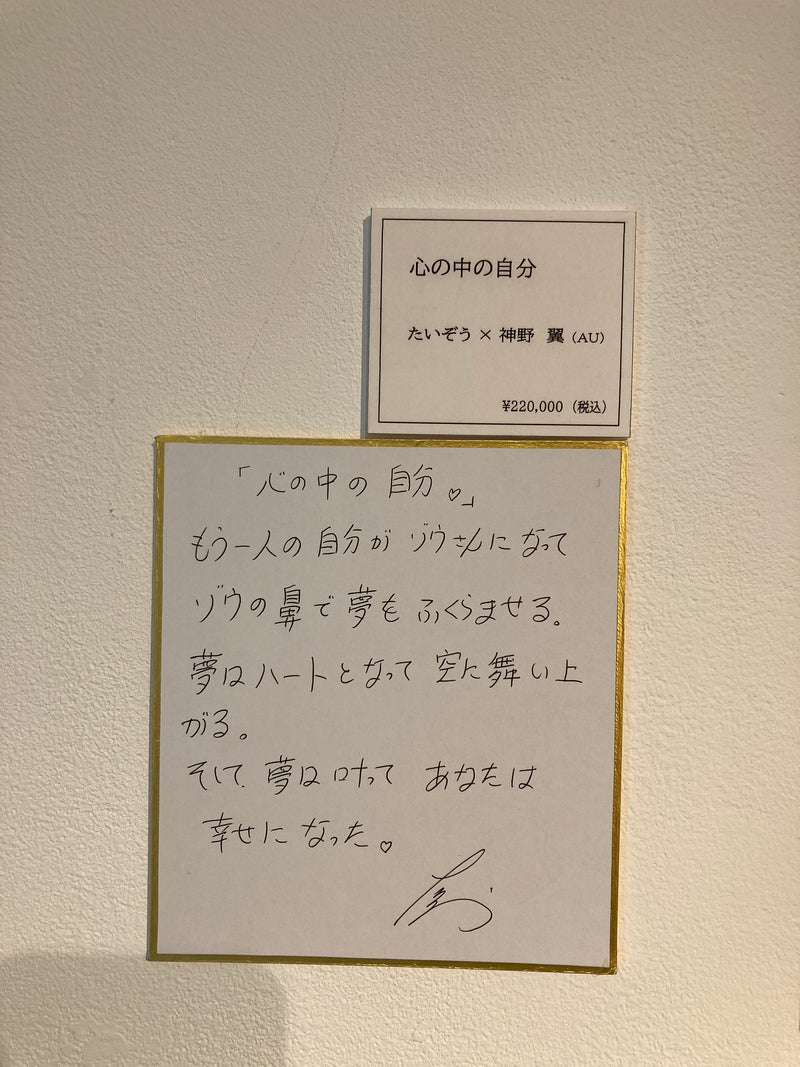 心の中の自分
たいぞう × 神野 翼 (AU)
¥220,000 (税込)
「心の中の自分♡」
もう一人の自分が ゾウさんになって
ゾウの鼻で夢を ふくらませる。
夢はハートとなって 空に舞い上
がる。
そして、夢は叶って あなたは
幸せになった。♡